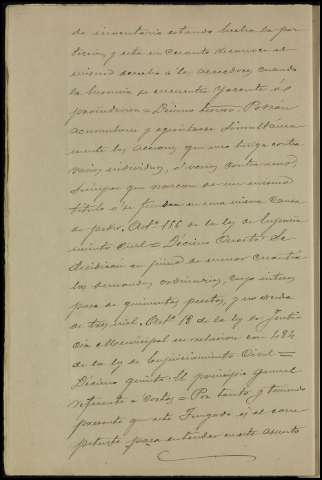 de inventario estando hecha la par
ticion, y esta en cuanto desconoce el
mismo derecho a los acreedores cuando
la herencia se encuentra yacente ó
proindivisa = Décimo tercero. Podrán
acumularse y ejercitarse simultánea
mente las acciones que uno tenga contra
varios individuos, ó varios contra uno,
siempre que nazcan de un mismo
título ó se funden en una misma causa
de pedir. Artº 156 de la ley de Enjuicia
miento Civil = Décimo cuarto. Se
decidirán en juicio de menor cuantía
las demandas ordinarias, cuyo interes
pase de quinientas pesetas, y no exceda
de tres mil. Artº 18 de la ley de Justi
cia Municipal en relacion con 484
de la ley de Enjuiciamiento Civil =
Décimo quinto. El principio general
referente a costas = Por tanto y teniendo
presente que este Juzgado es el com
petente para entender en este asunto